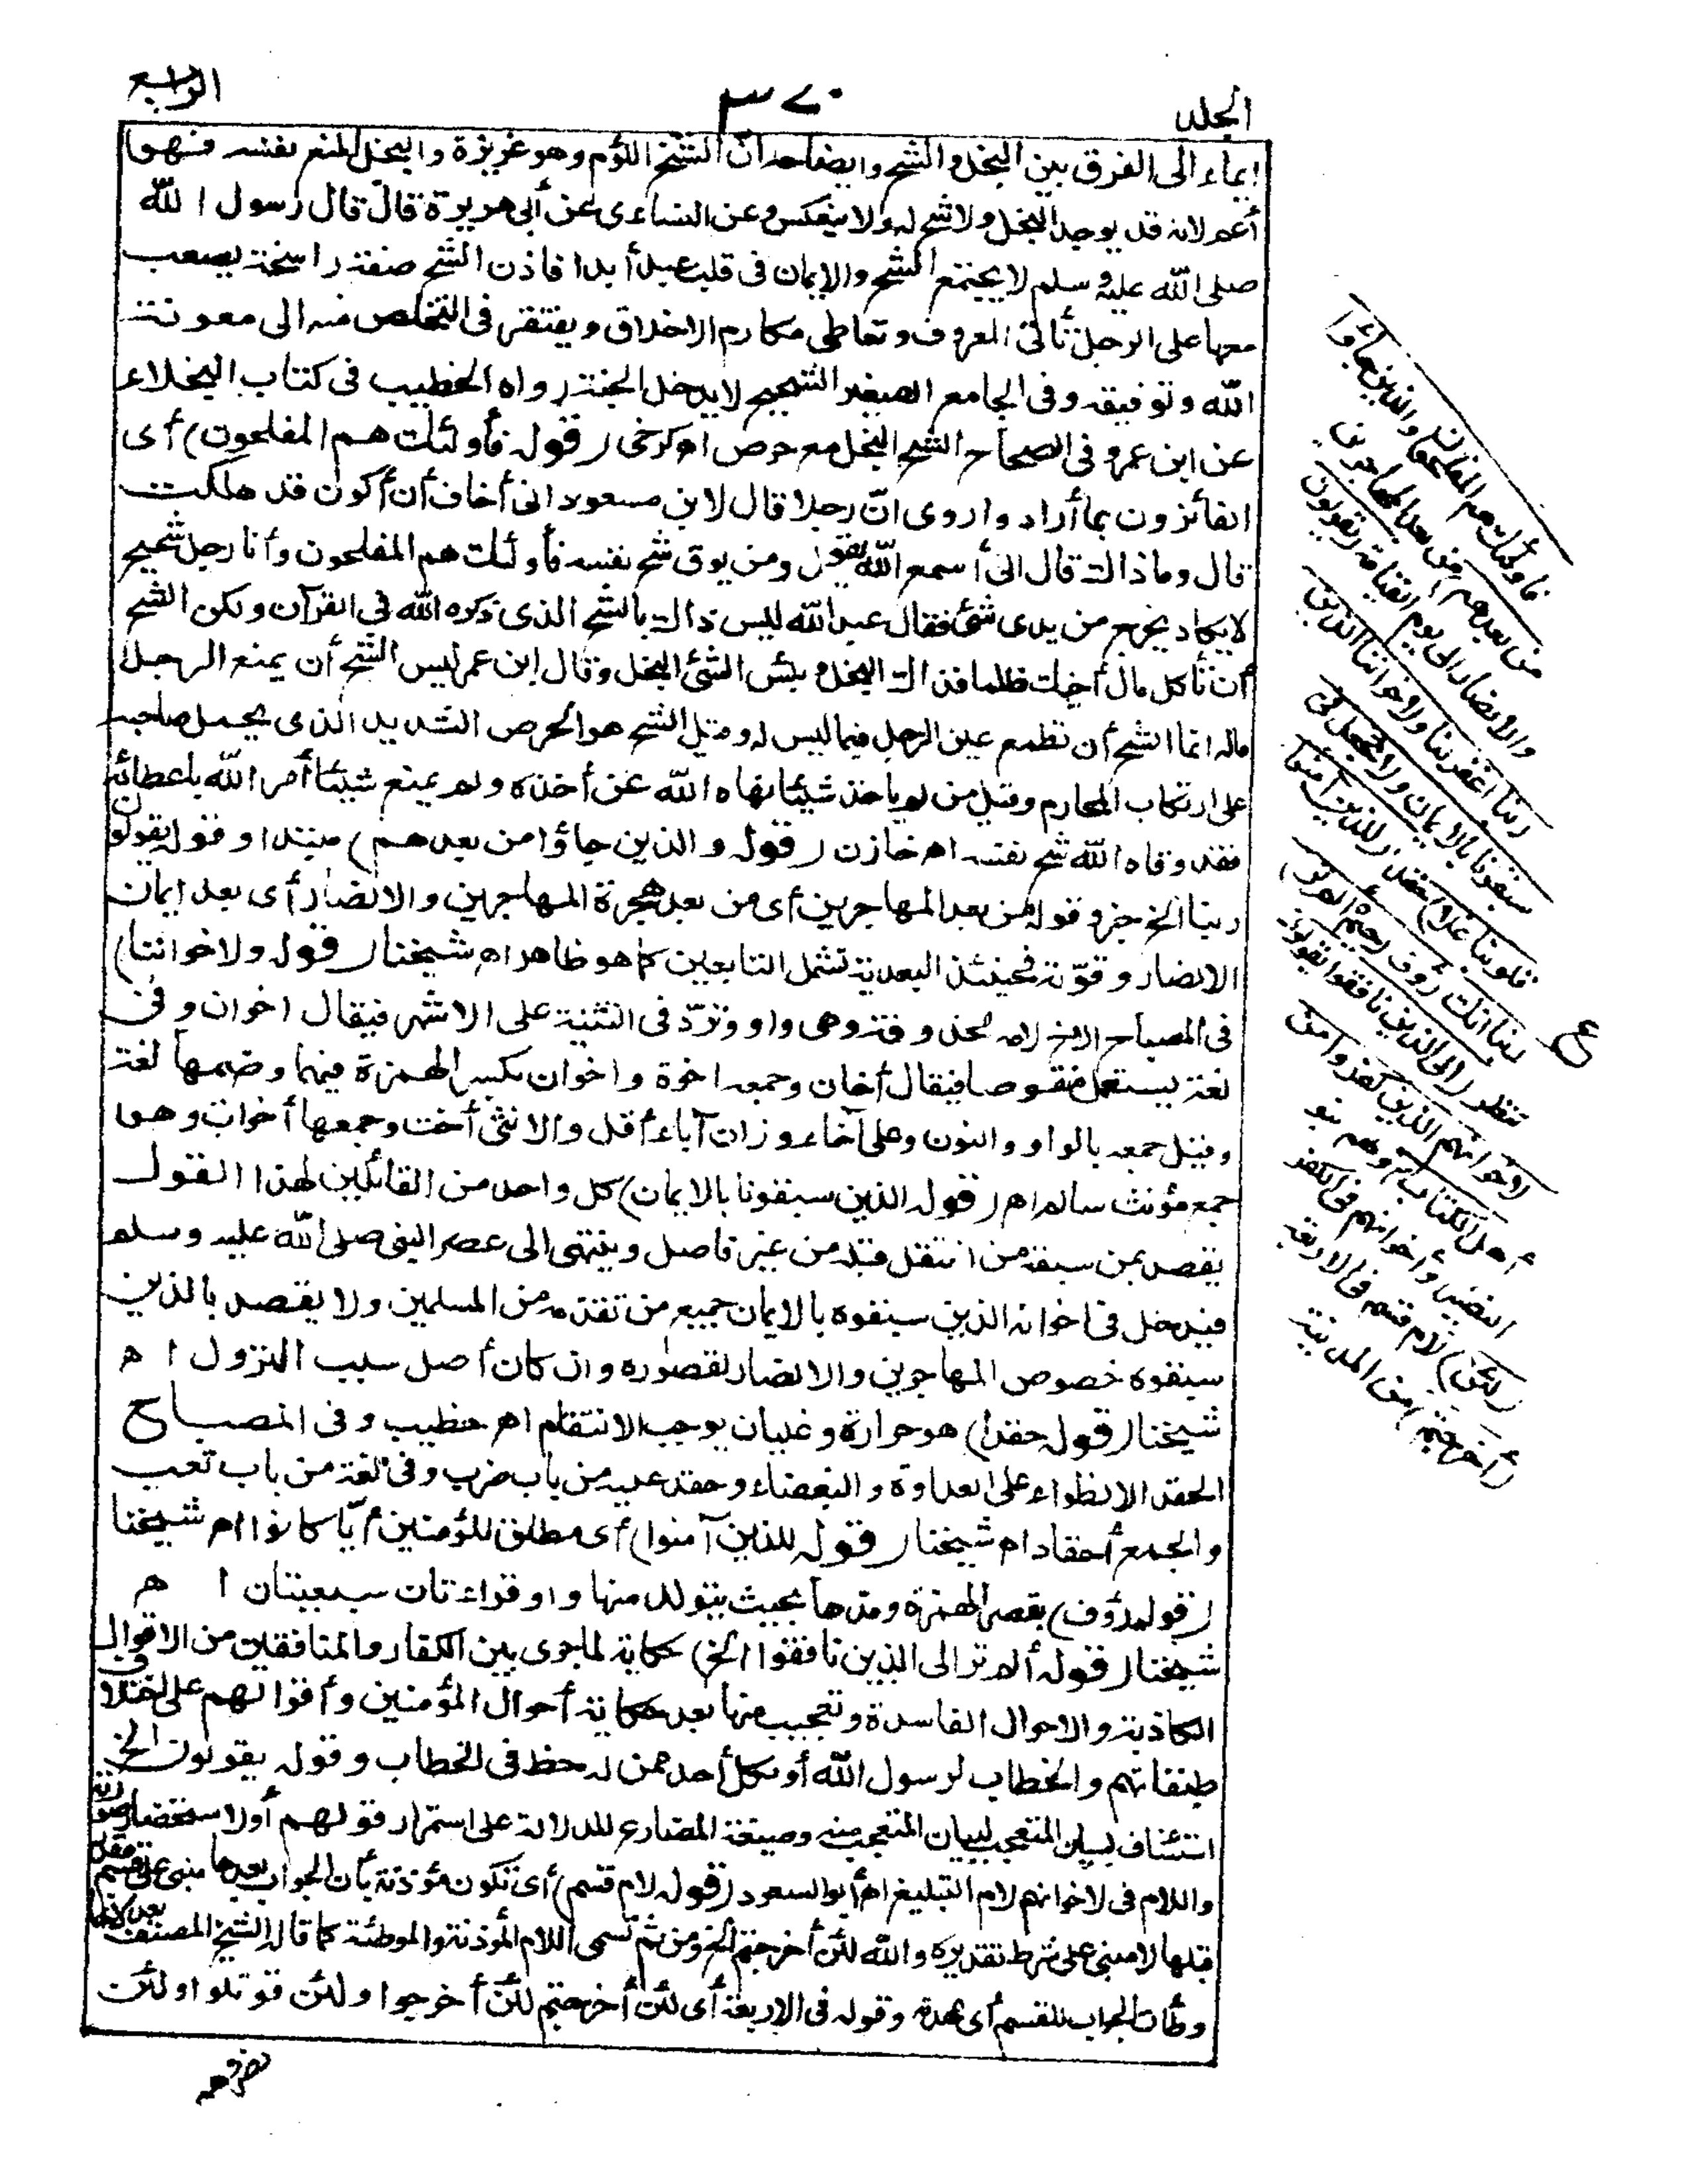 الجلد
٣٧٠
الرابع
ايماء الى الفرق بين البخل والشح وايضاحه انّ الشح اللؤم وهو غريزة والبخل المنع نفسه فهو
أعم لانه قد يوجد البخل ولا شح له ولا ينعكس وعن النساءى عن أبى هريرة قال قال رسول الله
صلى الله عليه وسلم لا يجتمع الشح والايمان فى قلب عبد أبدا فاذن الشح صفة راسخة يصعب
معها على الرجل تأتى المعروف وتعاطى مكارم الاخلاق ويفتقر فى التخلص منه الى معونة
الله وتوفيقه وفى الجامع الصغير الشحيح لا يدخل الجنة رواه الخطيب فى كتاب البخلاء
عن ابن عمر وفى الصحاح الشح البخل مع حرص اه كرخى (قوله فأولئك هم المفلحون) أى
الفائزون بما أراد واروى انّ رجلا قال لابن مسعود انى أخاف أن أكون قد هلكت
قال وما ذاك قال انى أسمع الله يقول ومن يوق شح نفسه فأولئك هم المفلحون وأنا رجل شحيح
لا يكاد يخرج من يدى شئ فقال عبد الله ليس ذاك بالشح الذى ذكره الله فى القرآن ولكن الشح
أن تأكل مال أخيك ظلما فذاك البخل وبئس الشئ البخل وقال ابن عمر ليس الشح أن يمنع الرجل
ماله انما الشح أن تطمع عين الرجل فيما ليس له وقيل الشح هو الحرص الشديد الذى يحمل صاحبه
على ارتكاب المحارم وقيل من لم يأخذ شيئا نهاه الله عن أخذه ولم يمنع شيئا أمر الله باعطائه
فقد وقاه الله شح نفسه اه خازن (قوله والذين جاؤا من بعدهم) مبتدا وقوله يقولون
ربنا الخ خبر وقوله من بعد المهاجرين أى من بعد هجرة المهاجرين والانصار أى بعد ايمان
الانصار وقوّته فحينئذ البعدية تشمل التابعين كما هو ظاهر اه شيخنا (قوله ولاخواننا)
فى المصباح الاخ لامه محذوفة وهى واو وتردّ فى التثنية على الاشهر فيقال اخوان وفى
لغة يستعمل منقوصا فيقال أخان وجمعه اخوة واخوان بكسر الهمزة فيهما وضمها لغة
وقيل جمعه بالواو والنون وعلى آخاء وزان آباء أقل والانثى أخت وجمعها أخوات وهو
جمع مؤنث سالم اه (قوله الذين سبقونا بالايمان) كل واحد من القائلين لهذا القول
يقصد بمن سبقه من انتقل قبله من غير فاصل وينتهى الى عصر النبى صلى الله عليه وسلم
فيدخل فى اخوانه الذين سبقوه بالايمان جميع من تقدّمه من المسلمين ولا يقصد بالذين
سبقوه خصوص المهاجرين والانصار لقصوره وان كان أصل سبب النزول اه
شيخنا (قوله حقدا) هو حرارة وغليان يوجب الانتقام اه خطيب وفى المصباح
الحقد الانطواء على العداوة والبغضاء وحقد عليه من باب ضرب وفى لغة من باب تعب
والجمع أحقاد اه شيخنا (قوله للذين آمنوا) أى مطلق للمؤمنين أيّا كانوا اه شيخنا
(قوله رؤف) بقصر الهمزة ومدها بحيث يتولد منها واو قراءتان سبعيتان اه
شيخنا (قوله ألم تر الى الذين نافقوا الخ) حكاية لما جرى بين الكفار والمنافقين من الاقوال
الكاذبة والاحوال الفاسدة وتعجيب منها بعد حكاية أحوال المؤمنين وأقوالهم على اختلاف
طبقاتهم والخطاب لرسول الله أو لكل أحد ممن له حظ فى الخطاب وقوله يقولون الخ
استئناف لبيان المتعجب منه وصيغة المضارع للدلالة على استمرار قولهم أو لاستحضار صورته
واللام فى لاخوانهم لام التبليغ اه أبو السعود (قوله لام قسم) أى تكون مؤذنة بأن الجواب بعدها مبنى على قسم مقدر
قبلها لا مبنى على شرط تقديره والله لئن أخرجتم الخ ومن ثم تسمى اللام المؤذنة والموطئة كما قال الشيخ المصنف بعد لانها
وطأت الجواب للقسم أى مهدته وقوله فى الاربعة أى لئن أخرجتم لئن أخرجوا ولئن قوتلوا ولئن
نصروهم
فاولئك هم المفلحون والذين جاؤا
من بعدهم) من بعد المهاجرين
والانصار الى يوم القيامة (يقولون
ربنا اغفر لنا ولاخواننا الذين
سبقونا بالايمان ولا تجعل فى
قلوبنا غلا) حقدا (للذين آمنوا
ربنا انك رؤف رحيم ألم تر)
تنظر (الى الذين نافقوا يقولون
لاخوانهم الذين كفروا من
أهل الكتاب) وهم بنو
النضير واخوانهم فى الكفر
(لئن) لام قسم فى الاربعة
(أخرجتم) من المدينة
ع